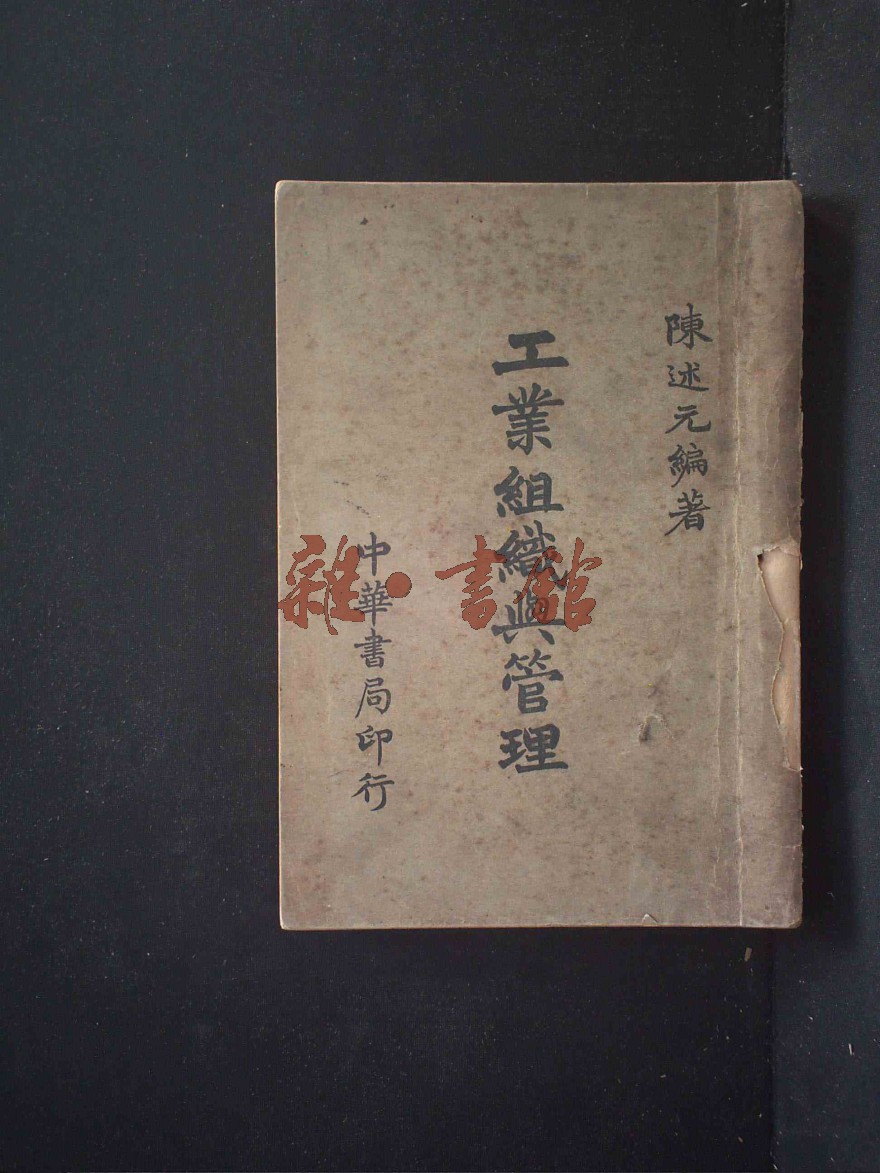 陳述元編著
工業組織與管理
中華書局印行
雜·書館